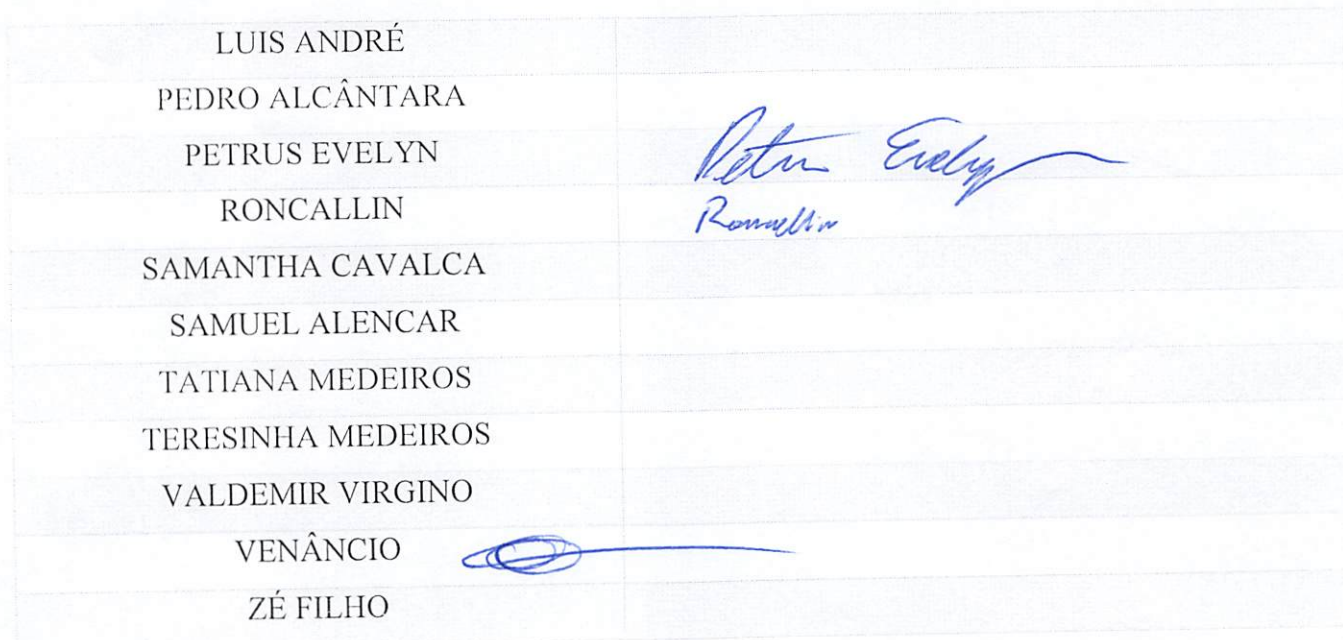 LUIS ANDRÉ
PEDRO ALCÂNTARA
PETRUS EVELYN Petrus Evelyn
RONCALLIN Roncallin
SAMANTHA CAVALCA
SAMUEL ALENCAR
TATIANA MEDEIROS
TERESINHA MEDEIROS
VALDEMIR VIRGINO
VENÂNCIO
ZÉ FILHO